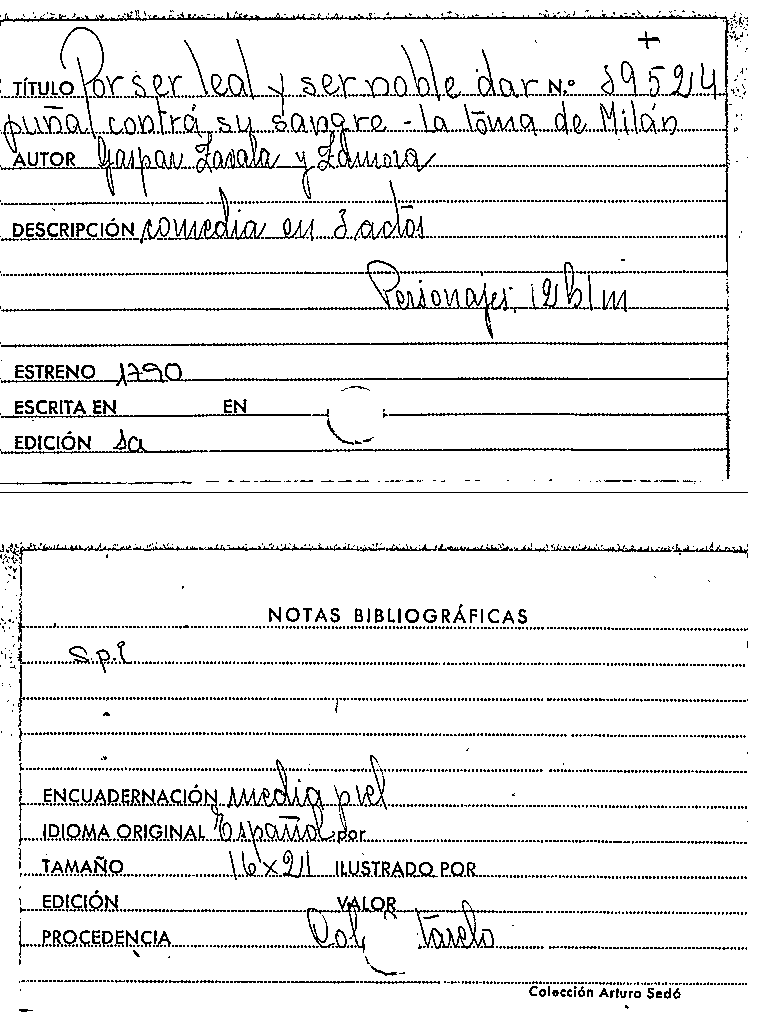 +
TÍTULO Por ser leal y ser noble dar N.º 89524
puñal contra su sangre - La toma de Milán
AUTOR Gaspar Zavala y Zamora
DESCRIPCIÓN comedia en 3 actos
Personajes, 12h1m
ESTRENO 1790
ESCRITA EN EN
EDICIÓN sa
NOTAS BIBLIOGRÁFICAS
s.p.i
ENCUADERNACIÓN media piel
IDIOMA ORIGINAL Español por
TAMAÑO 16x21 ILUSTRADO POR
EDICIÓN VALOR
PROCEDENCIA Col
Colección Arturo Sedó